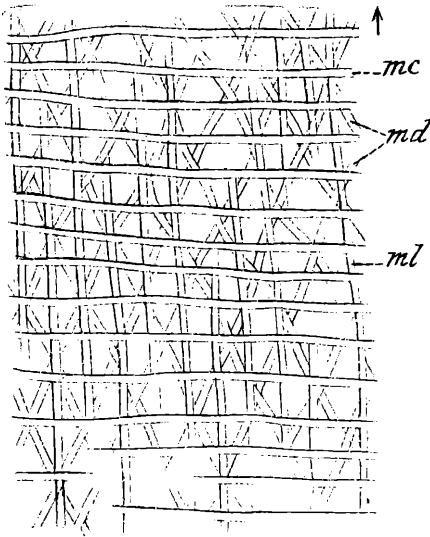 mc
md
ml